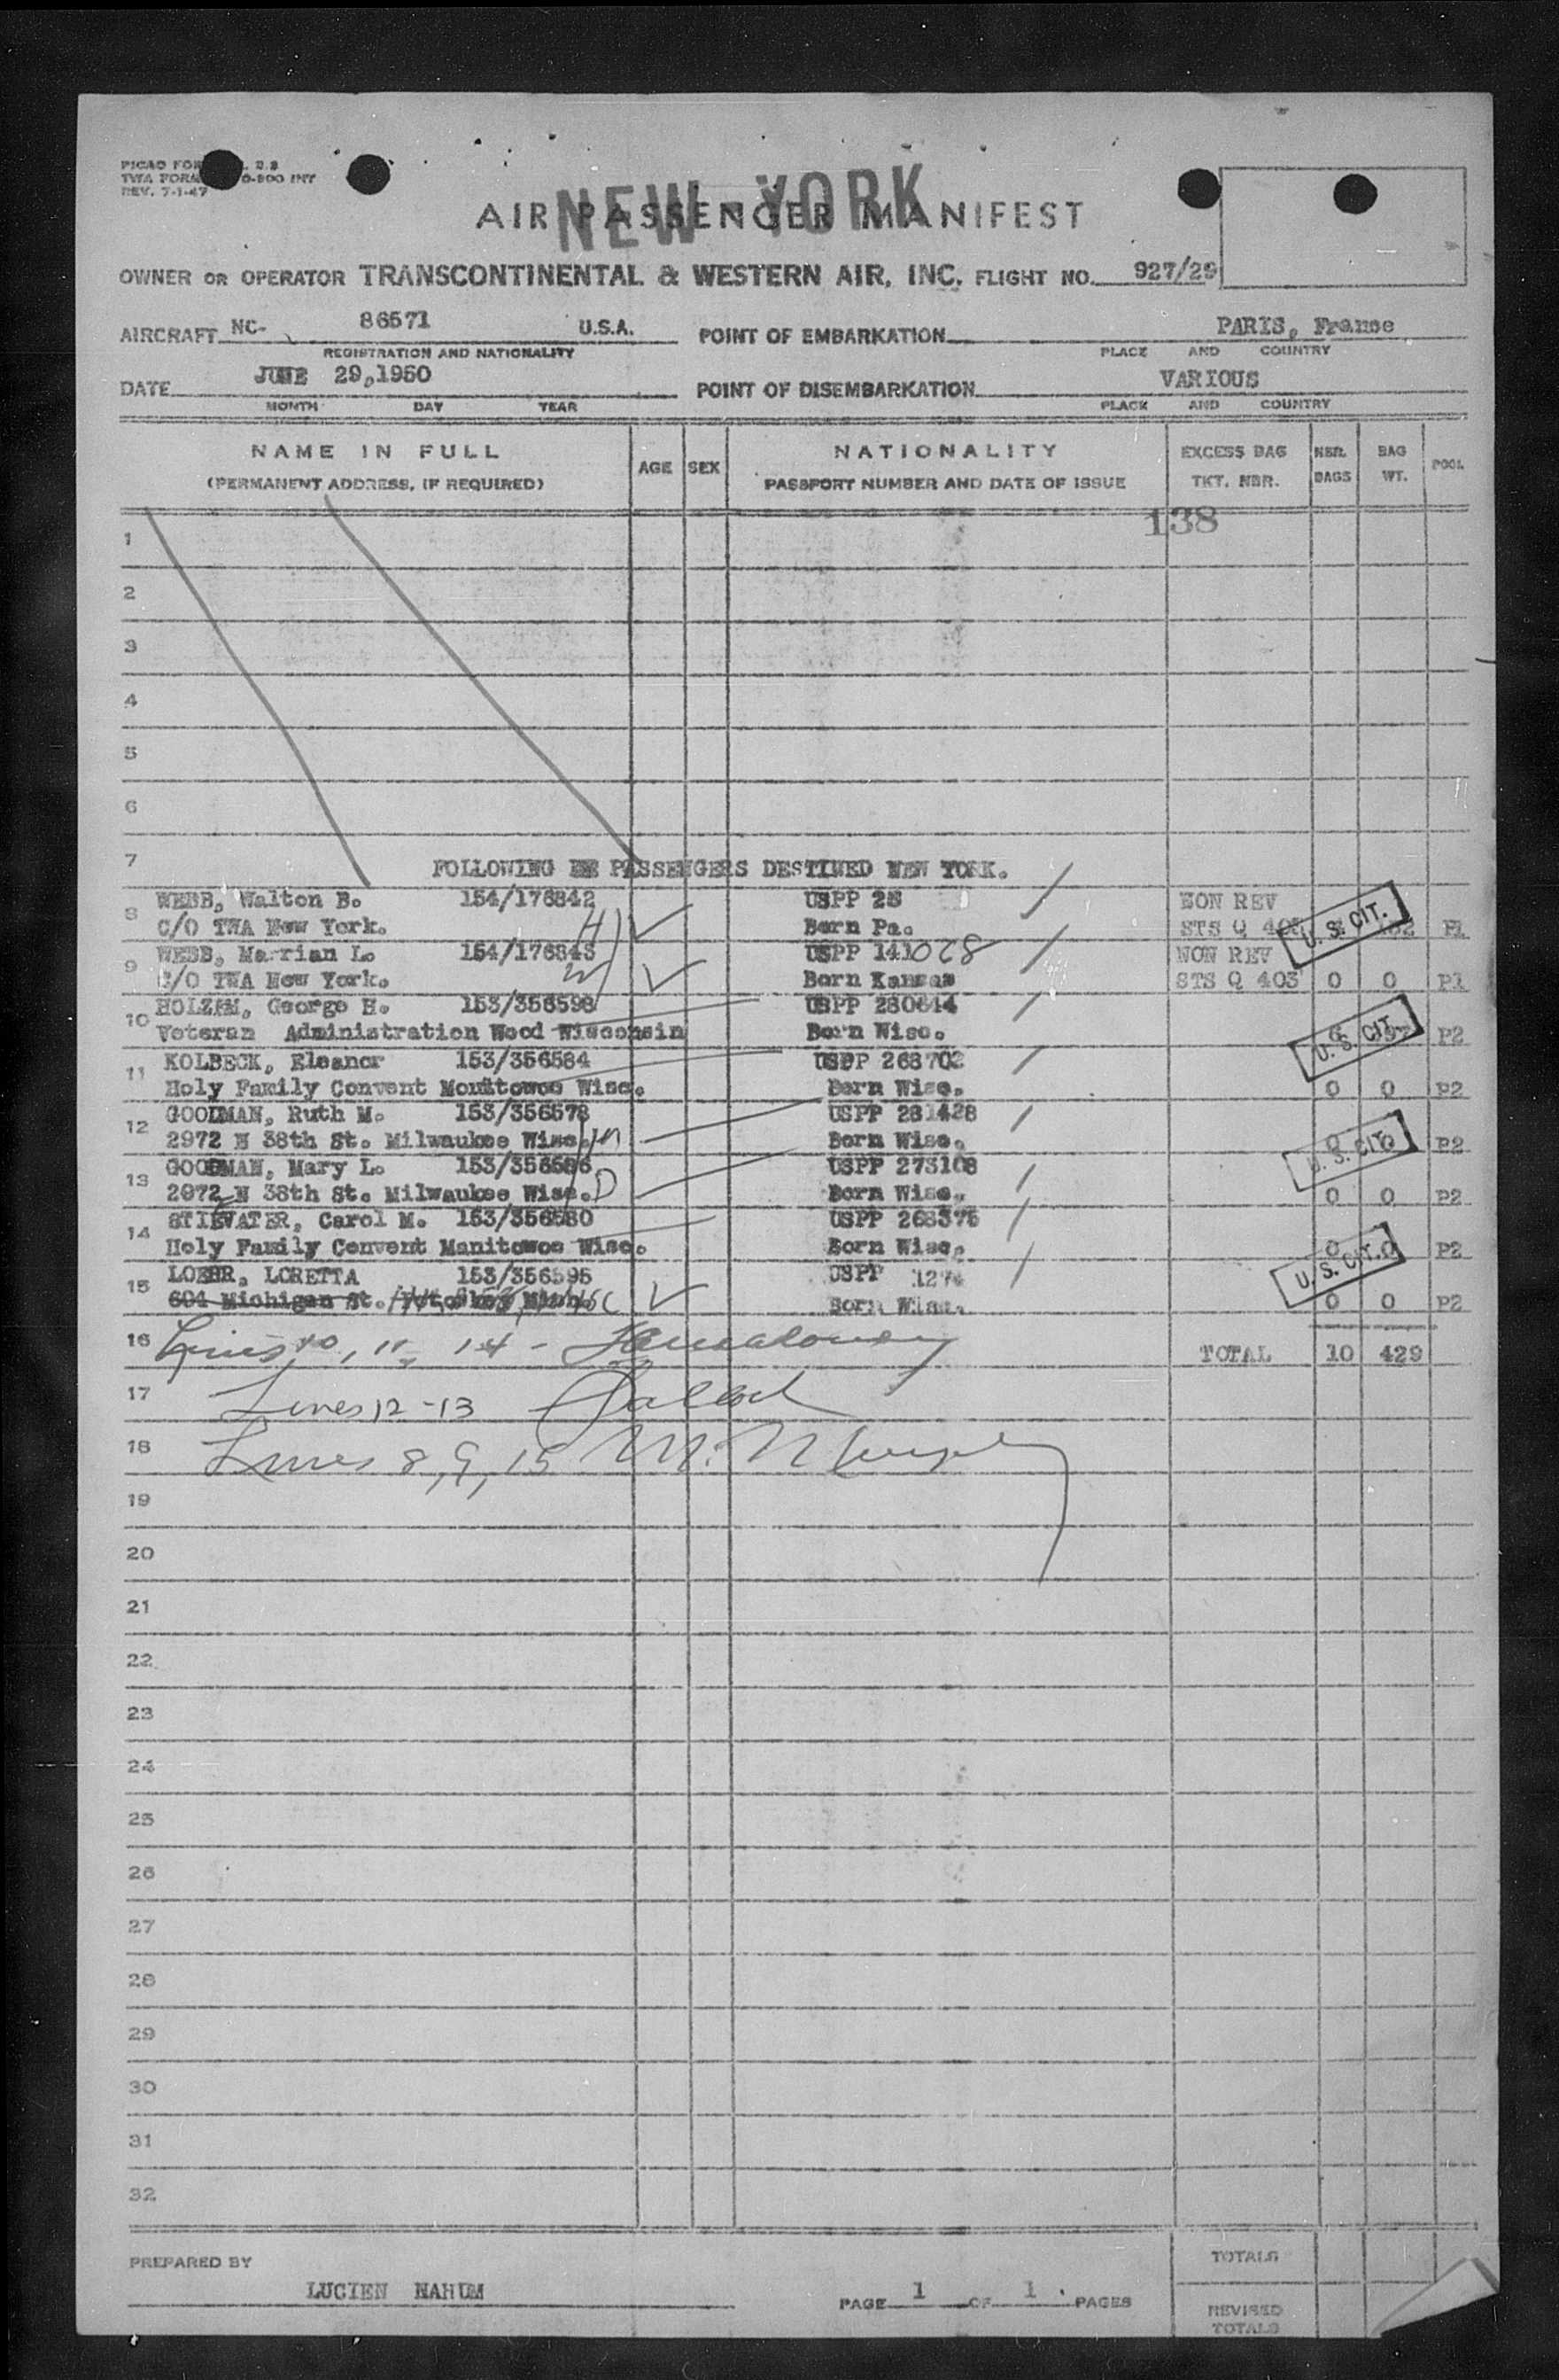 PICAO FOR 2.8
TWA FORM 0-800 INT
REV. 7-1-47
NEW YORK
AIR PASSENGER MANIFEST
OWNER OR OPERATOR TRANSCONTINENTAL & WESTERN AIR, INC. FLIGHT NO. 927/29
AIRCRAFT NC- 86571 U.S.A. POINT OF EMBARKATION PARIS, France
REGISTRATION AND NATIONALITY PLACE AND COUNTRY
DATE JUNE 29,1950 POINT OF DISEMBARKATION VARIOUS
MONTH DAY YEAR PLACE AND COUNTRY
NAME IN FULL AGE SEX NATIONALITY EXCESS BAG NBR. BAG POOL
(PERMANENT ADDRESS, IF REQUIRED) PASSPORT NUMBER AND DATE OF ISSUE TKT. NBR. BAGS WT.
138
1
2
3
4
5
6
7 FOLLOWING PASSENGERS DESTINED NEW YORK.
8 WEBB, Walton B. 154/176842 USPP 25 NON REV
C/O TWA New York. H) Born Pa. STS Q U. S. CIT. P1
9 WEBB, Marrian L. 154/176843 USPP 141028 NON REV
C/O TWA New York. W) Born Kansas STS Q 403 0 0 P1
10 HOLZEM, George H. 153/356598 USPP 280614
Veteran Administration Wood Wisconsin Born Wisc. U. S. CIT. P2
11 KOLBECK, Eleanor 153/356584 USPP 268702
Holy Family Convent Monitowoc Wisc. Born Wisc. 0 0 P2
12 GOODMAN, Ruth M. 153/356578 USPP 281428
2972 N 38th St. Milwaukee Wisc. Born Wisc. 0 0 U. S. CIT. P2
13 GOODMAN, Mary L. 153/356586 USPP 273108
2972 N 38th St. Milwaukee Wisc. D Born Wisc. 0 0 P2
14 STIEVATER, Carol M. 153/356580 USPP 268375
Holy Family Convent Manitowoc Wisc. Born Wisc. 0 0 U. S. CIT. P2
15 LOEHR, LORETTA 153/356595 USPP 1274
604 Michigan St. Born Wisc. 0 0 P2
16 Lines 10, 11, 14 - TOTAL 10 429
17 Lines 12-13
18 Lines 8, 9, 15 M. N Murphy
19
20
21
22
23
24
25
26
27
28
29
30
31
32
PREPARED BY TOTALS
LUCIEN NAHUM PAGE 1 OF 1 PAGES REVISED
TOTALS